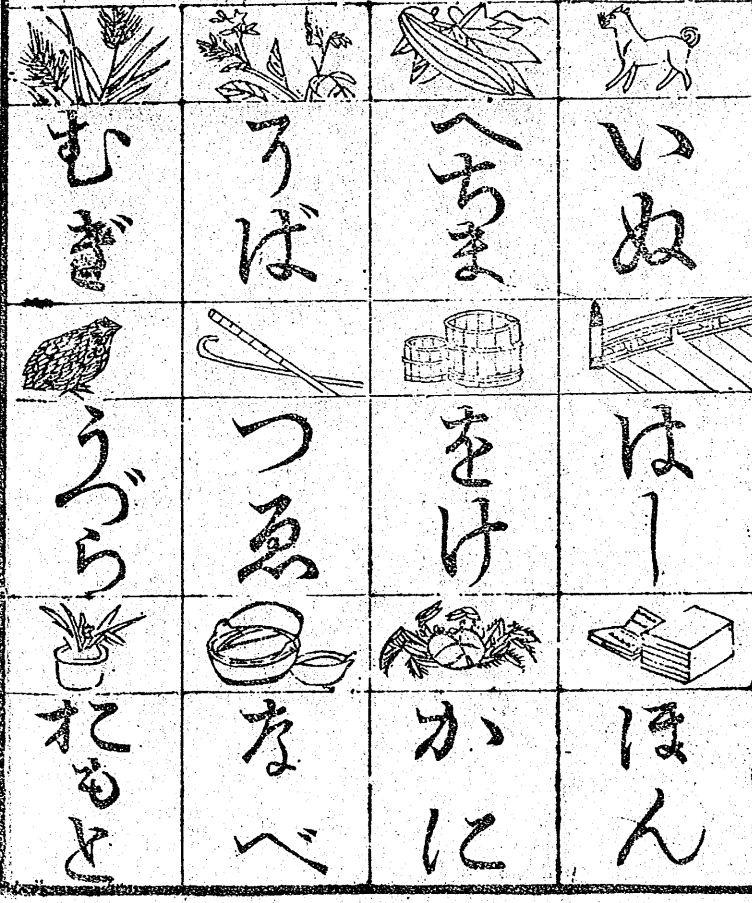 いぬ
はし
ほん
へちま
をけ
かに
そば
つゑ
なべ
むぎ
うづら
おもと